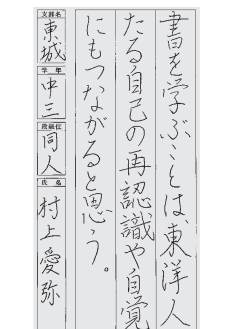 書を学ぶことは、東洋人
たる自己の再認識や自覚
にもつながると思う。
支部名
東城
学年
中三
段級位
同人
氏名
村上愛弥